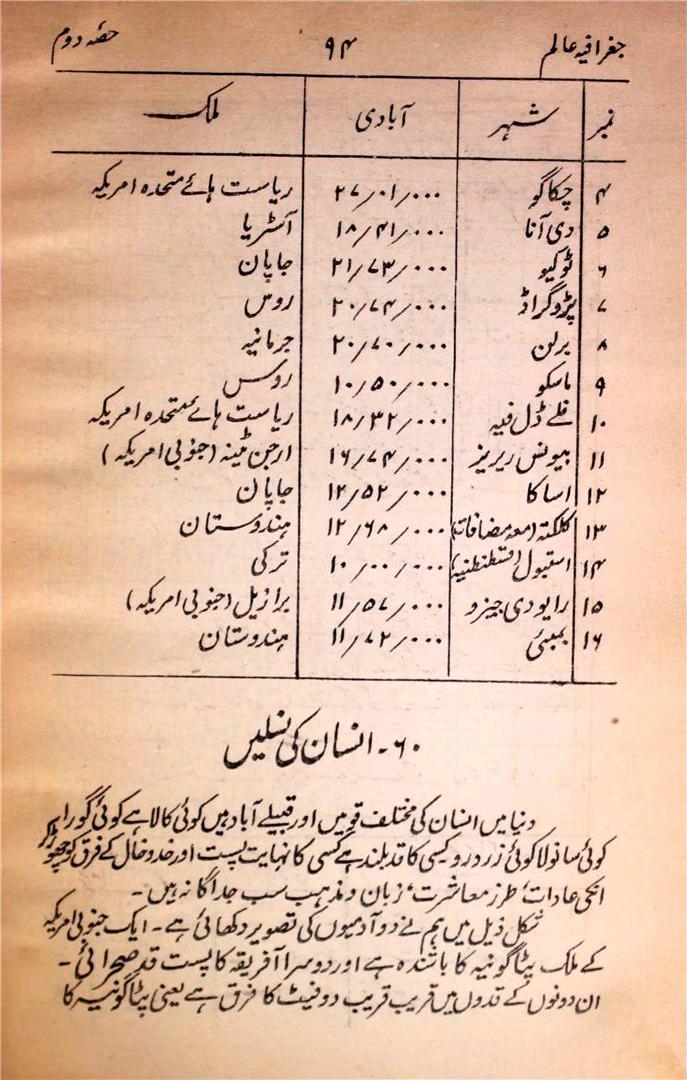 جغرافیہ عالم ۹۴ حصّہ دوم
نمبر شہر آبادی ملک
۴ چکاگو ۲۷٫۰۱٫۰۰۰ ریاست ہائے متحدہ امریکہ
۵ وی آنا ۱۸٫۴۱٫۰۰۰ آسٹریا
۶ ٹوکیو ۲۱٫۷۳٫۰۰۰ جاپان
۷ پڑوگراڈ ۲۰٫۷۴٫۰۰۰ روس
۸ برلن ۲۰٫۷۰٫۰۰۰ جرمانیہ
۹ ماسکو ۱۰٫۵۰٫۰۰۰ روس
۱۰ فلے ڈل فیہ ۱۸٫۳۲٫۰۰۰ ریاست ہائے متحدہ امریکہ
۱۱ بیونس ریریز ۱۶٫۷۴٫۰۰۰ ارجن ٹینہ (جنوبی امریکہ)
۱۲ اساکا ۱۲٫۵۲٫۰۰۰ جاپان
۱۳ کلکتہ (معہ مضافات) ۱۲٫۶۸٫۰۰۰ ہندوستان
۱۴ استبول (قسطنطنیہ) ۱۰٫۰۰٫۰۰۰ ترکی
۱۵ رایودی جیزو ۱۱٫۵۷٫۰۰۰ برازیل (جنوبی امریکہ)
۱۶ بمبئی ۱۱٫۷۲٫۰۰۰ ہندوستان
۶۰ - انسان کی نسلیں
دنیا میں انسان کی مختلف قومیں اور قبیلے آباد ہیں کوئی کالا ہے کوئی گورا
کوئی سانولا کوئی زرد رو کسی کا قد بلند ہے کسی کا نہایت پست اور خدوخال کے فرق کو چھوڑکر
انکی عادات، طرز معاشرت، زبان و مذہب سب جداگانہ ہیں۔
شکل ذیل میں ہم نے دو آدمیوں کی تصویر دکھائی ہے۔ ایک جنوبی امریکہ
کے ملک پٹاگونیہ کا باشندہ ہے اور دوسرا آفریقہ کا پست قد صحرائی۔
ان دونوں کے قدوں میں قریب قریب دو فیٹ کا فرق ہے یعنی پٹاگونیہ کا